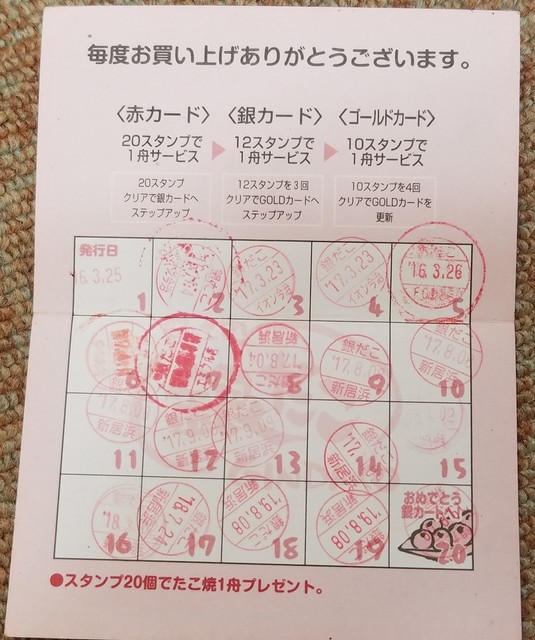 毎度お買い上げありがとうございます。
〈赤カード〉 〈銀カード〉 〈ゴールドカード〉
20スタンプで 12スタンプで 10スタンプで
1舟サービス ▶ 1舟サービス ▶ 1舟サービス
20スタンプ 12スタンプを3回 10スタンプを4回
クリアで銀カードへ クリアでGOLDカードへ クリアでGOLDカードを
ステップアップ ステップアップ 更新
発行日
16.3.25
1
2
銀だこ
'17.3.23
3
'17.3.23
4
'16.3.26
5
6
7
新居浜
'17.8.04
銀だこ
8
銀だこ
'17.8.02
新居浜
9
銀だこ
'17.8.02
新居浜
10
'17.8.0
新居浜
11
12
13
銀だこ
14
新居浜
15
16
'18.7.24
新居浜
17
新居浜
'19.8.08
銀だこ
18
新居浜
'19.8.08
19
おめでとう
銀カードへ!
20
●スタンプ20個でたこ焼1舟プレゼント。